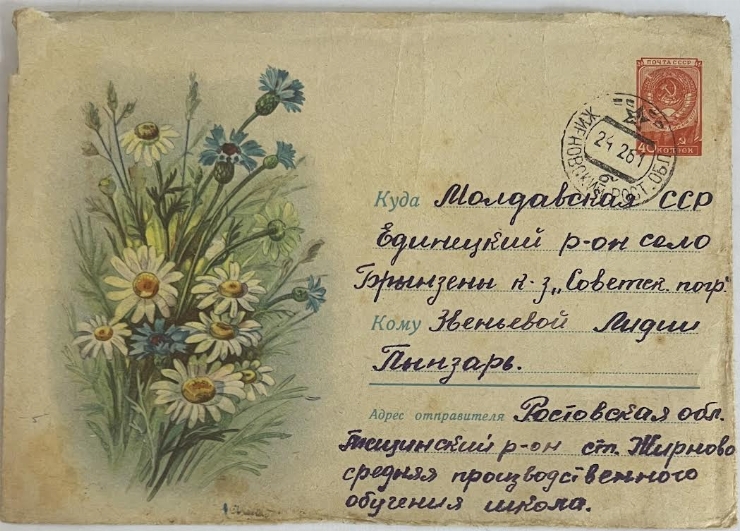 ПОЧТА СССР
40 КОПЕЕК
ЖИРНОВСКИЙ РОСТ. ОБЛ.
24 2 61
Куда Молдавская ССР
Единецкий р-он село
Брынзены к-з „Советск. погр."
Кому Звеньевой Лидии
Пынзарь.
Адрес отправителя Ростовская обл.
Тацинский р-он ст. Жирново
средняя производственного
обучения школа.